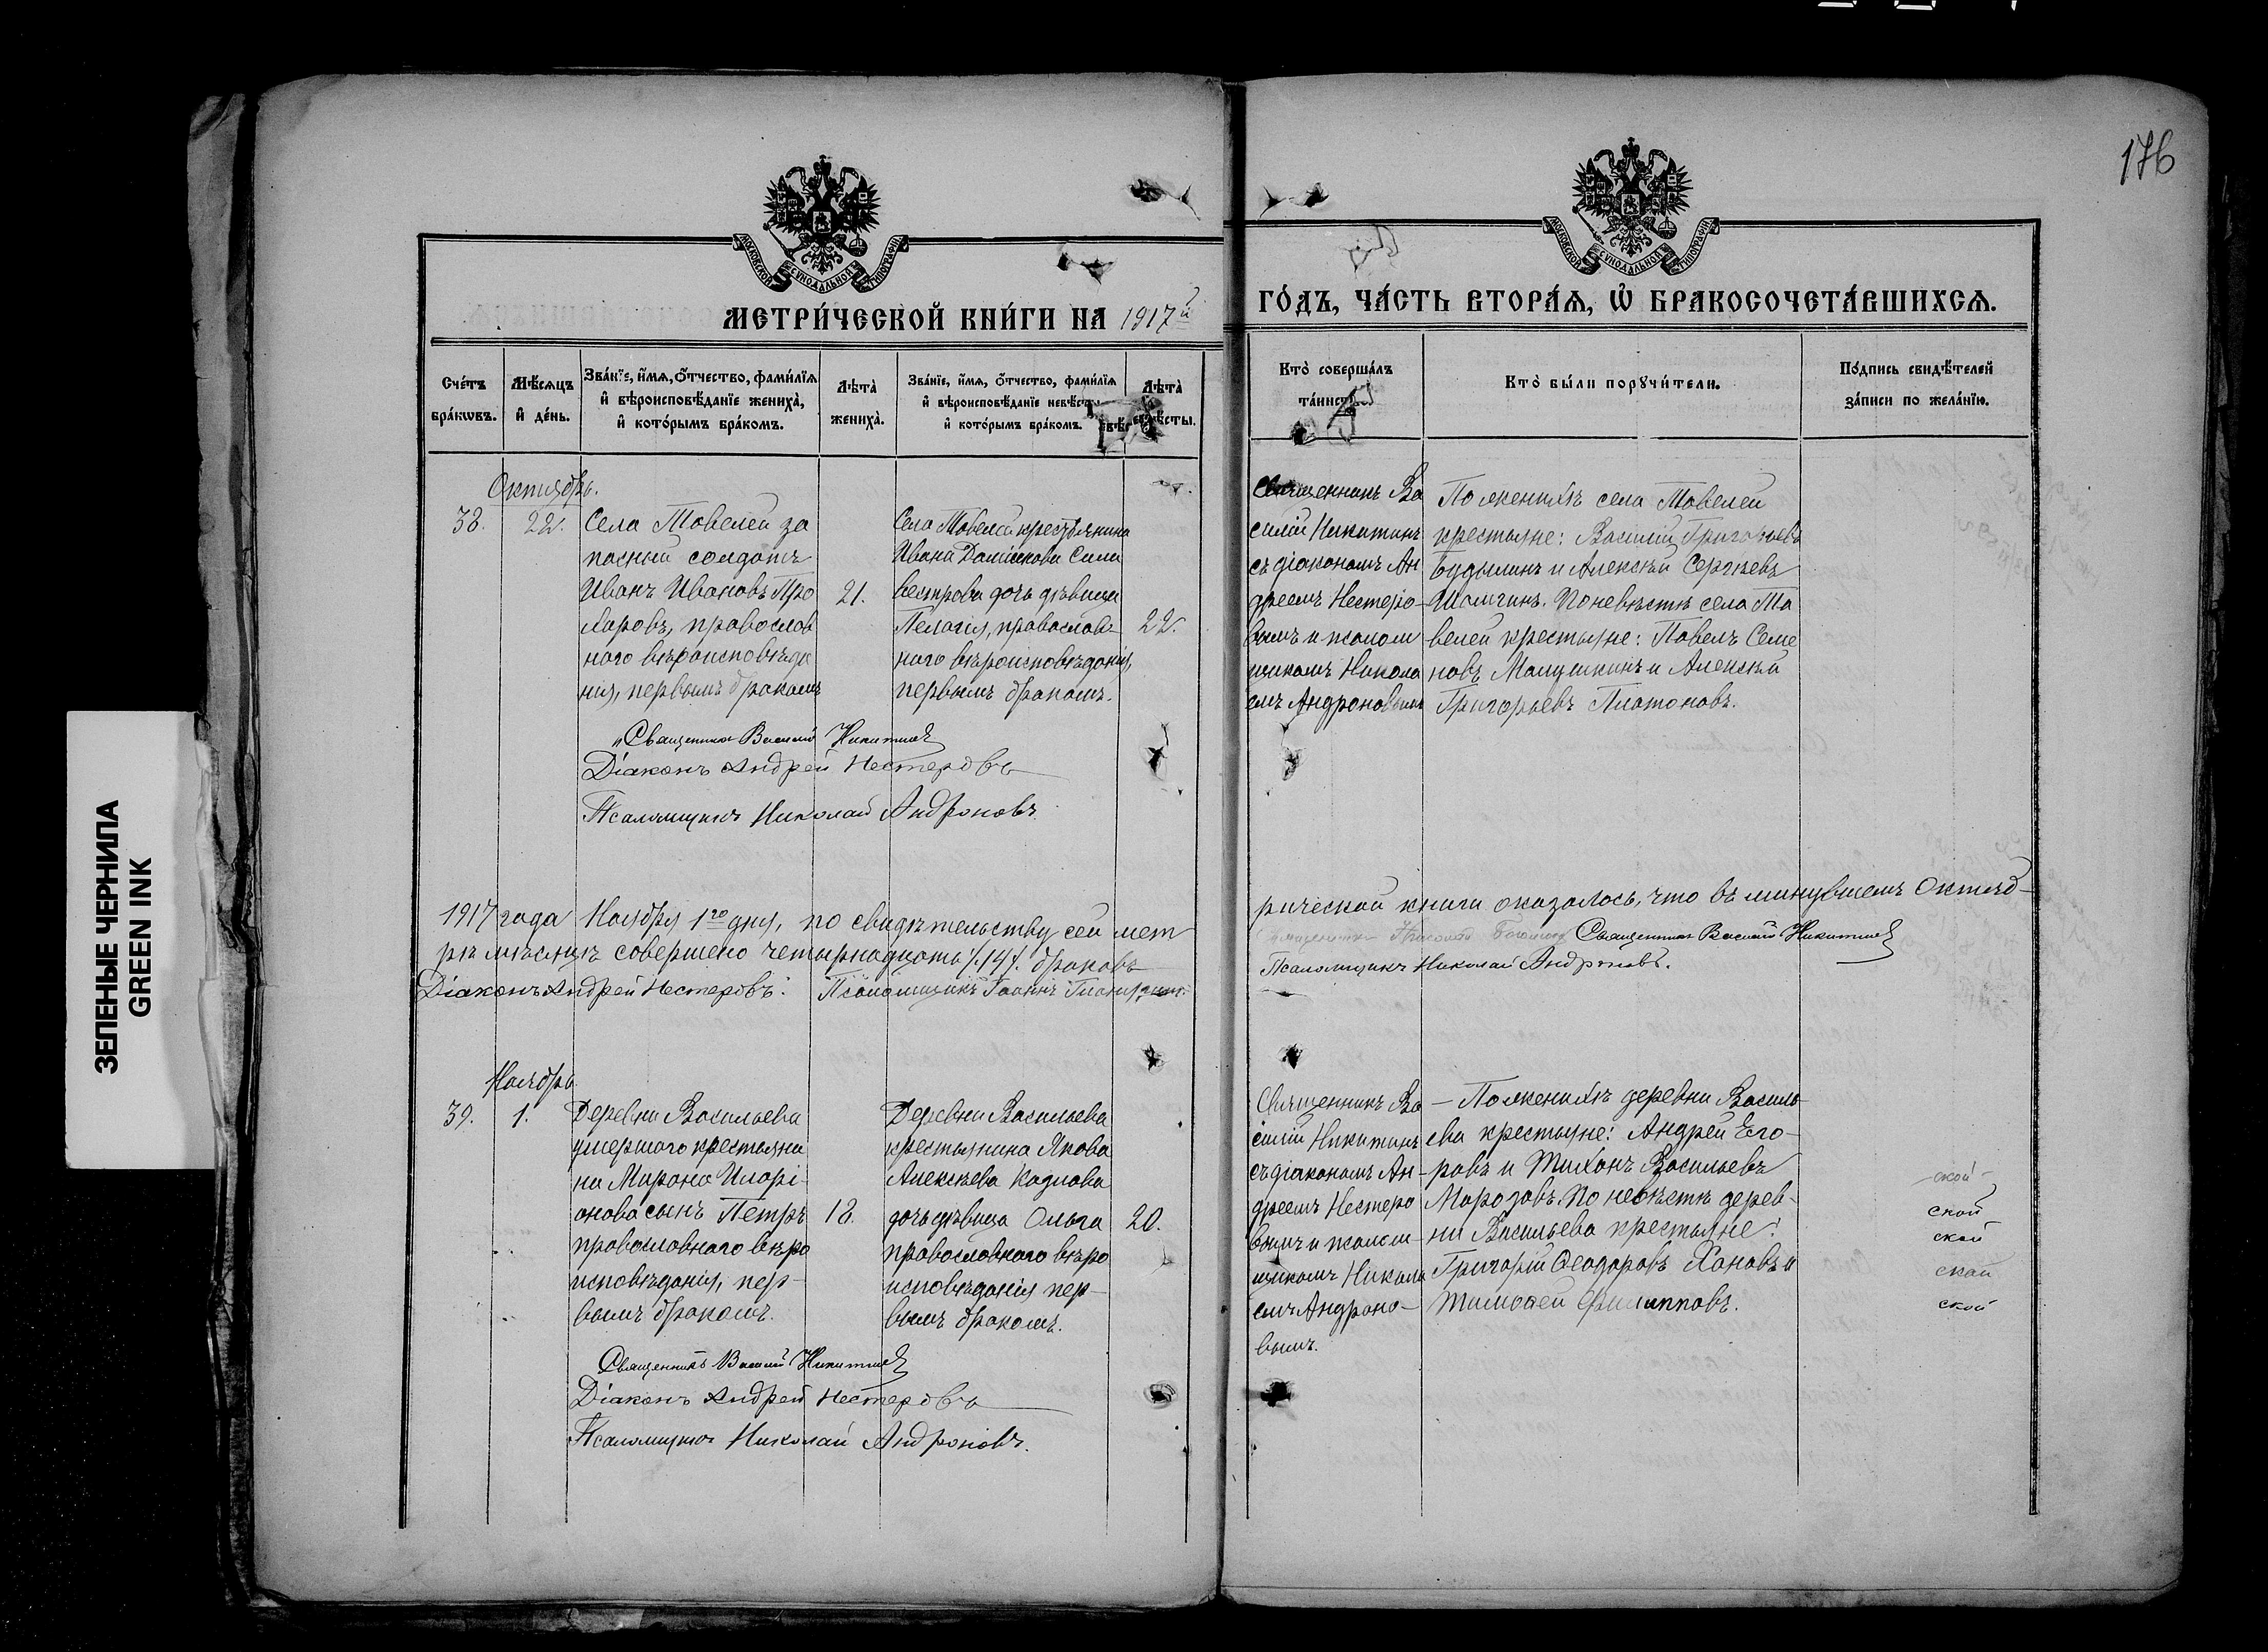 176
МОСКОВСКОЙ СѴНОДАЛЬНОЙ ТИПОГРАФІИ
МОСКОВСКОЙ СѴНОДАЛЬНОЙ ТИПОГРАФІИ
МЕТРИ́ЧЕСКОЙ КНИ́ГИ НА 1917й
ГО́ДЪ, ЧА́СТЬ ВТОРА́Я, Ѡ БРАКОСОЧЕТА́ВШИХСЯ.
Сче́тъ бра́кѡвъ.
Мѣ́сяцъ и де́нь.
Зва́нїе, и́мя, о́тчество, фами́лїя
и вѣроисповѣ́данїе жениха̀,
и кото́рымъ бра́комъ.
Лѣта̀ жениха̀.
Зва́нїе, и́мя, о́тчество, фами́лїя
и вѣроисповѣ́данїе невѣ́сты
и кото́рымъ бра́комъ.
Лѣта̀ невѣ́сты.
Кто̀ соверша́лъ
та́инство
Кто̀ бы́ли порꙋчи́тели.
По́дпись свидѣ́телей
за́писи по жела́нїю.
Октябрь.
38.
22.
Села Тавелей за
пасный солдатъ
Иванъ Ивановъ Про
харовъ, православ
наго вѣроисповѣда
нія, первымъ бракомъ
21.
Села Тавелей крестьянина
Ивана
вестрова дочь дѣвица
Пелагія, православ-
наго вѣроисповѣданія,
первымъ бракомъ.
22.
Священникъ Ва
силій Никитинъ
съ діакономъ Ан
дреемъ Нестеро-
вымъ и псалом
щикомъ Никола
емъ Андроновымъ
По женихѣ села Тавелей
крестьяне: Василій Григорьевъ
и Алексѣй Сергѣевъ
По невѣстѣ села Та
велей крестьяне: Павелъ Семе
новъ и Алексѣй
Григорьевъ Платоновъ.
Священникъ Василій Никитинъ
Діаконъ Андрей Нестеровъ
Псаломщикъ Николай Андроновъ.
1917 года Ноября 1го дня, по свидѣтельству сей мет
рической книги оказалось, что въ минувшемъ Октяб-
рѣ мѣсяцѣ совершено четырнадцать /.14/. браковъ
Священникъ Василій Никитинъ
Діаконъ Андрей Нестеровъ. Псаломщикъ
Псаломщикъ Николай Андроновъ.
Ноябрь
39.
1.
Деревни Васильева
умершаго крестьяни
на Мирона Иларі-
онова сынъ Петръ
православнаго вѣро
исповѣданія, пер-
вымъ бракомъ.
18.
Деревни Васильева
крестьянина Якова
Алексѣева Козлова
дочь дѣвица Ольга
православнаго вѣро
исповѣданія пер-
вымъ бракомъ.
20.
Священникъ Ва
силій Никитинъ
съ діакономъ Ан-
дреемъ Нестеро
вымъ и псалом-
щикомъ Никола
емъ Андроно-
вымъ.
— По женихѣ деревни Василь-
ева крестьяне: Андрей Его-
ровъ и Тихонъ Васильевъ
Марозовъ. По невѣстѣ дерев-
ни Васильева крестьяне:
Григорій Ѳеодоровъ Хановъ и
Тимоѳей Филипповъ.
ской
ской
ской
ской
ской
Священникъ Василій Никитинъ
Діаконъ Андрей Нестеровъ
Псаломщикъ Николай Андроновъ.
ЗЕЛЕНЫЕ ЧЕРНИЛА
GREEN INK